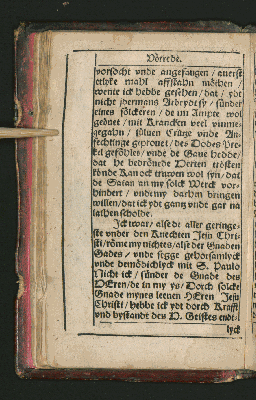 Vörrede.
vorsocht vnde angefangen / auerst
etlyke mahl affstahn möthen /
wente ick hebbe gesehen / dat / ydt
nicht ydermans Arbeydt sy / sünder
eines sölckeren / de im Ampte wol
geöuet / mit Krancken veel vmme-
gegahn / sülven Crütze vnde An-
fechtinge geprouet / des Dodes Pre-
kel geföhlet / vnde de Gaue hedde /
dat he bedröuede Herten trösten
könde Kan ock truwen wol syn / dat
de Satan an my solck Werck vor-
hindert / vnde my darhen bringen
willen / dat ick ydt gantz vnde gar na
lathen scholde.
Ick twar / alse de aller geringe-
ste vnder den Knechten Jesu Chri-
sti / röme my nichtes / alse der Gnaden
Gades / vnde segge gehorsamlyck
vnde demödichlyck mit S. Paulo
Nicht ick / sünder de Gnade des
HEren / de in my ys / Dorch solcke
Gnade mynes leeuen HEren Jesu
Christi / hebbe ick ydt dorch Krafft
vnd bystandt des H. Geistes endt-
lyck